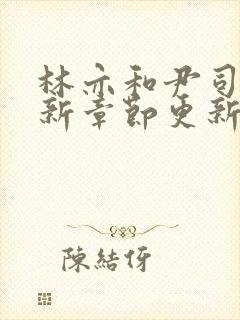 林亦和尹司
新章節更新
陳結伢